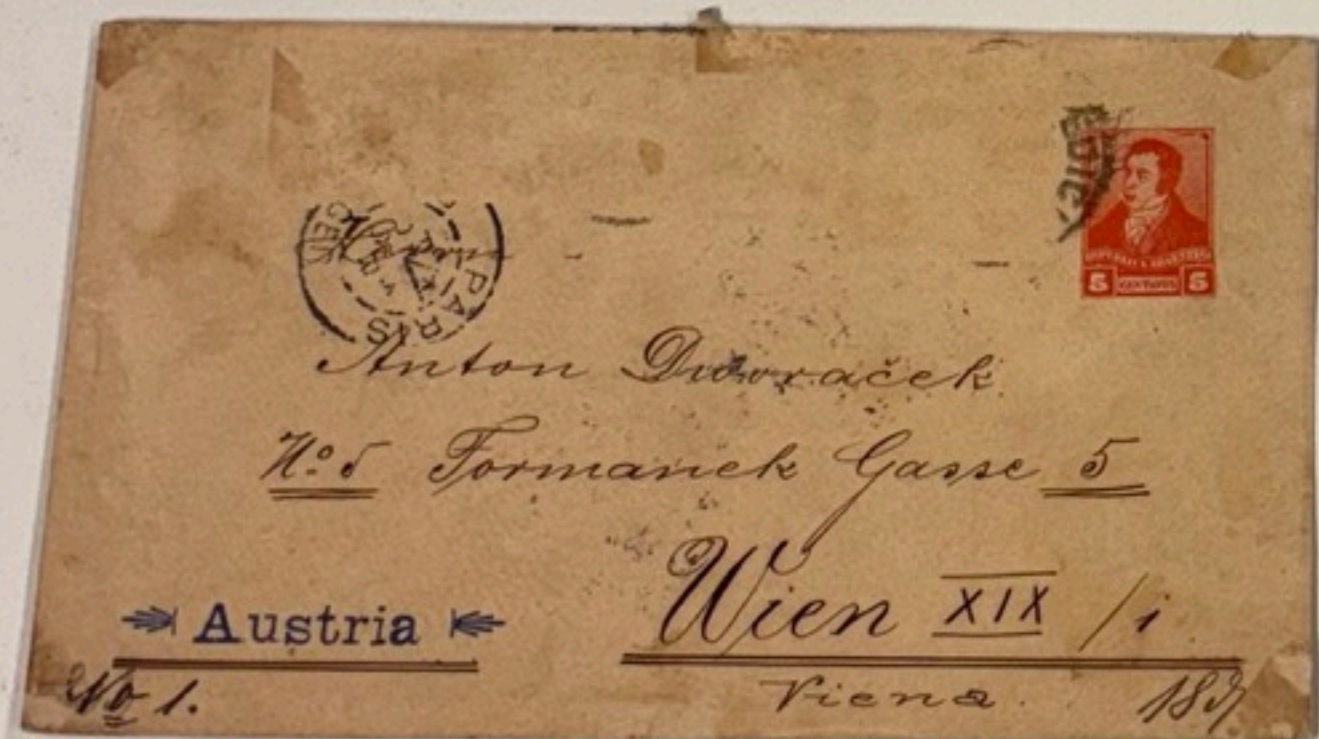 REPUBLICA ARGENTINA
5 CENTAVOS 5
PARIS
Anton Dvoraček
No 5 Formanek Gasse 5
Wien XIX / 1
Austria
No 1.
Viena.